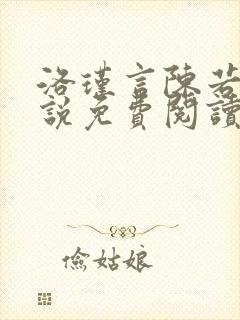 洛瑾言陳若
說免費閱讀
儉姑娘